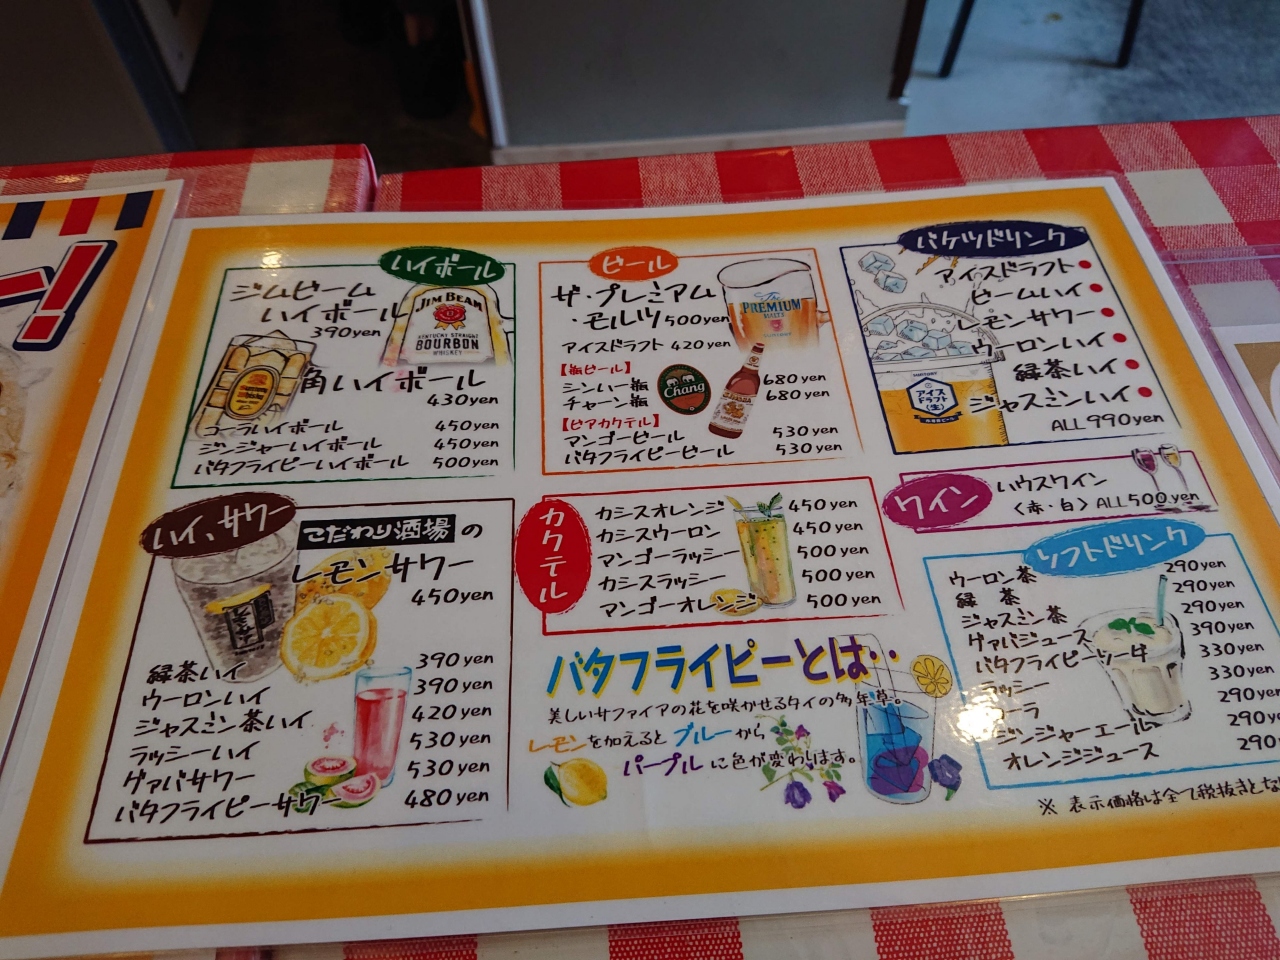 ハイボール
ジムビーム
ハイボール
390yen
JIM BEAM
KENTUCKY STRAIGHT
BOURBON
WHISKEY
角ハイボール
430yen
コーラハイボール 450yen
ジンジャーハイボール 450yen
バタフライピーハイボール 500yen
ビール
ザ・プレミアム
・モルツ 500yen
The
PREMIUM
MALT'S
SUNTORY
アイスドラフト 420yen
【瓶ビール】
シンハー瓶 680yen
チャーン瓶 680yen
Chang
【ビアカクテル】
マンゴービール 530yen
バタフライピービール 530yen
バケツドリンク
アイスドラフト
ビームハイ
レモンサワー
ウーロンハイ
緑茶ハイ
ジャスミンハイ
ALL990yen
SUNTORY
アイス
ドラフト
〈生〉
ワイン
ハウスワイン
〈赤・白〉ALL500yen
ハイ、サワー
こだわり酒場の
レモンサワー
450yen
緑茶ハイ 390yen
ウーロンハイ 390yen
ジャスミン茶ハイ 420yen
ラッシーハイ 530yen
グァバサワー 530yen
バタフライピーサワー 480yen
カクテル
カシスオレンジ 450yen
カシスウーロン 450yen
マンゴーラッシー 500yen
カシスラッシー 500yen
マンゴーオレンジ 500yen
バタフライピーとは‥
美しいサファイアの花を咲かせるタイの多年草。
レモンを加えるとブルーから
パープルに色が変わります。
ソフトドリンク
ウーロン茶 290yen
緑茶 290yen
ジャスミン茶 290yen
グァバジュース 390yen
バタフライピーソーダ 330yen
ラッシー 330yen
コーラ 290yen
ジンジャーエール 290yo
オレンジジュース 290
※ 表示価格は全て税抜きとな